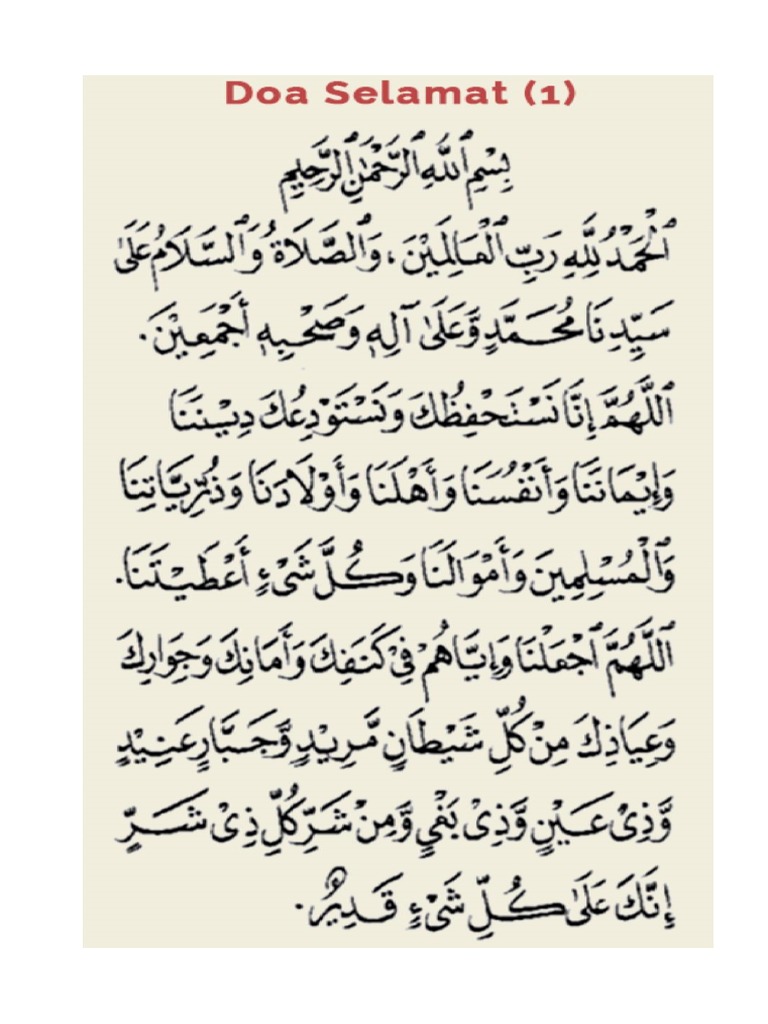 Doa Selamat (1)
بِسْمِ اللَّهِ الرَّحْمَٰنِ الرَّحِيمِ
اَلْحَمْدُ لِلَّهِ رَبِّ الْعَالَمِيْنَ، وَالصَّلَاةُ وَالسَّلَامُ عَلَىٰ
سَيِّدِنَا مُحَمَّدٍ وَّعَلَىٰ آلِهِ وَصَحْبِهِ أَجْمَعِيْنَ.
اَللَّهُمَّ إِنَّا نَسْتَحْفِظُكَ وَنَسْتَوْدِعُكَ دِيْنَنَا
وَإِيْمَانَنَا وَأَنْفُسَنَا وَأَهْلَنَا وَأَوْلَادَنَا وَذُرِّيَّاتِنَا
وَالْمُسْلِمِيْنَ وَأَمْوَالَنَا وَكُلَّ شَيْءٍ أَعْطَيْتَنَا.
اَللَّهُمَّ اجْعَلْنَا وَإِيَّاهُمْ فِيْ كَنَفِكَ وَأَمَانِكَ وَجِوَارِكَ
وَعِيَاذِكَ مِنْ كُلِّ شَيْطَانٍ مَّرِيْدٍ وَّجَبَّارٍ عَنِيْدٍ
وَّذِيْ عَيْنٍ وَّذِيْ بَغْيٍ وَّمِنْ شَرِّ كُلِّ ذِيْ شَرٍّ
إِنَّكَ عَلَىٰ كُلِّ شَيْءٍ قَدِيْرٌ.